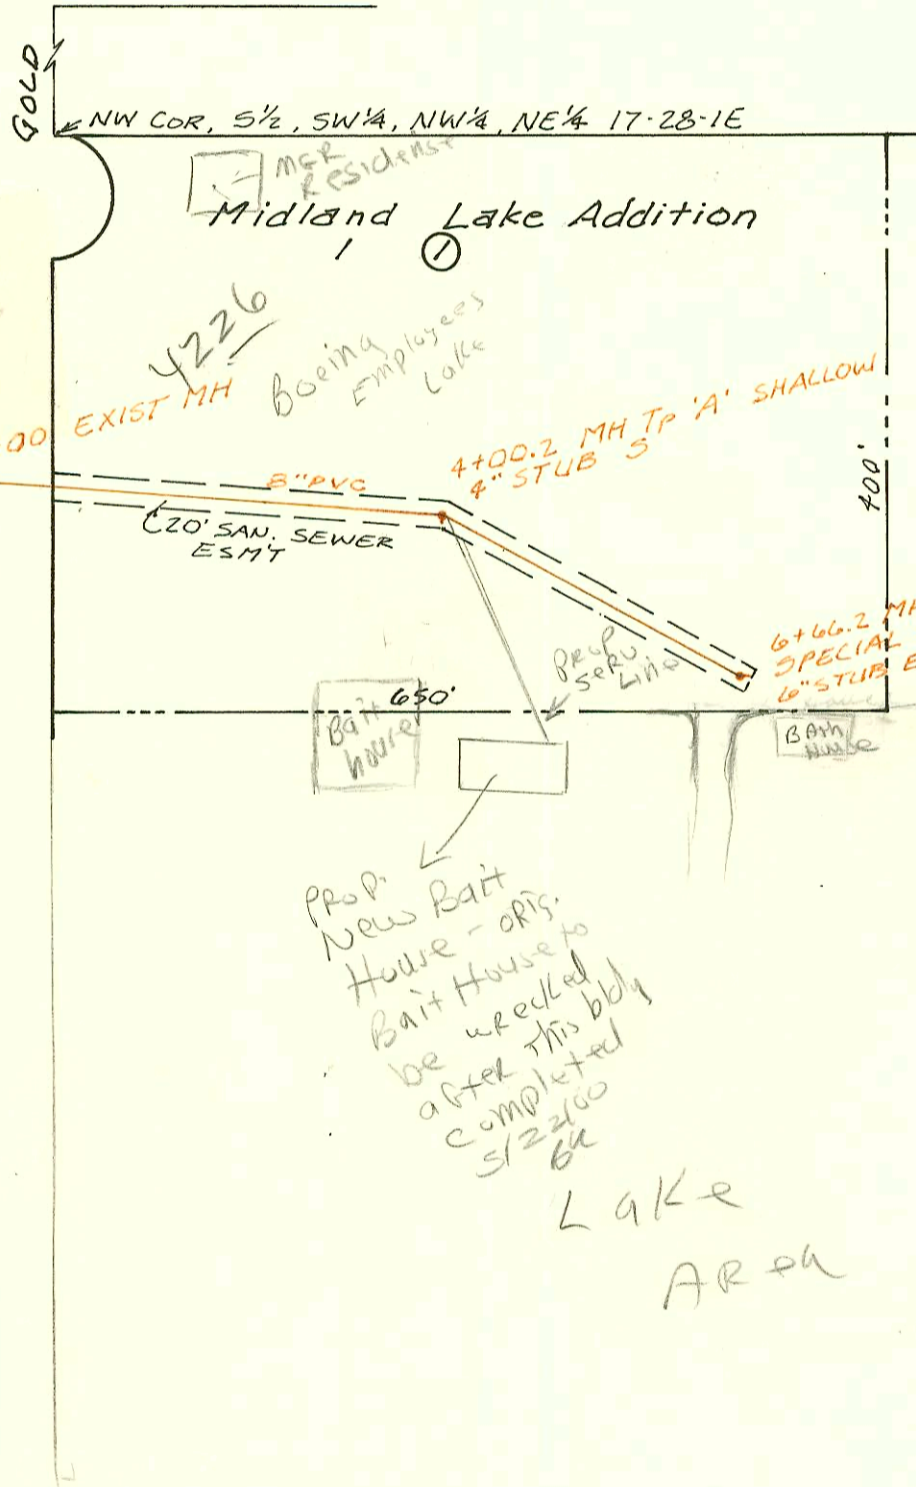 GOLD
NW COR, S½, SW¼, NW¼, NE¼ 17-28-1E
MGR
Residense
Midland Lake Addition
1 ①
4226
Boeing
Employees
Lake
00 EXIST MH
8" PVC
20' SAN. SEWER
ESM'T
4+00.2 MH Tp 'A' SHALLOW
4" STUB S
400'
6+66.2 MH
SPECIAL
6" STUB E
Prop
Serv.
Line
650'
Bait
house
BAth
House
PROP.
New Bait
House - ORIG.
Bait House to
be wrecked
after This bldg
completed
5/22/00
Lake
AREA